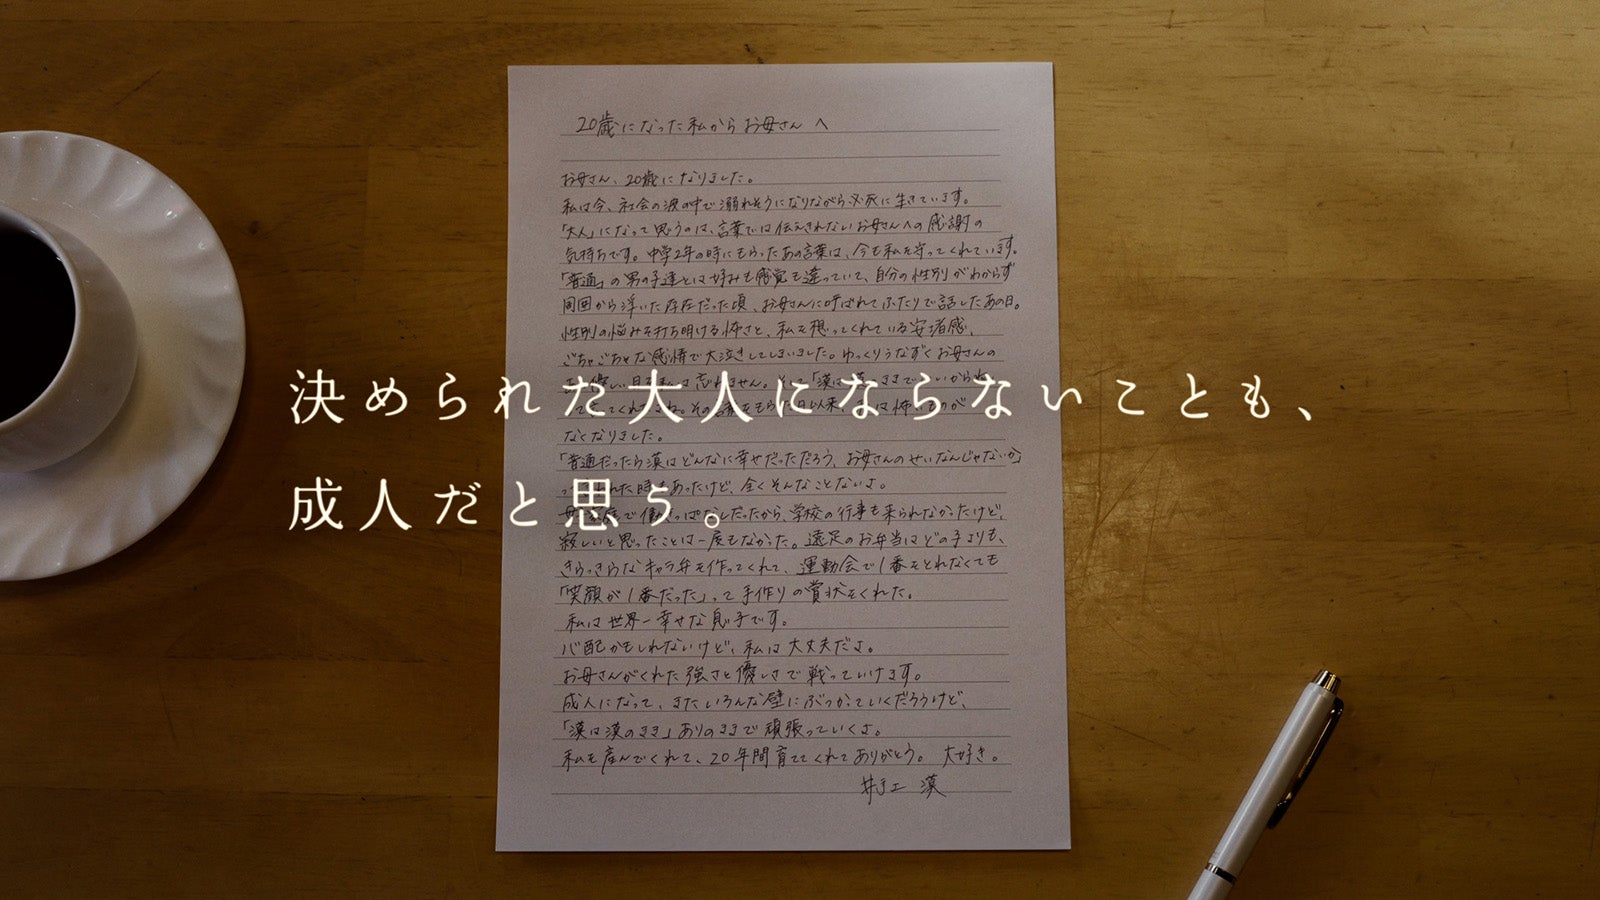 20歳になった私からお母さんへ
お母さん、20歳になりました。
私は今、社会の波の中で溺れそうになりながら必死に生きています。
「大人」になって思うのは、言葉では伝えきれないお母さんへの感謝の
気持ちです。中学2年の時にもらったあの言葉は、今も私を守ってくれています。
「普通」の男の子達とは好みも感覚も違っていて、自分の性別がわからず
周囲から浮いた存在だった頃、お母さんに呼ばれてふたりで話したあの日。
性別の悩みを打ち明ける怖さと、私を想ってくれている安堵感、
ごちゃごちゃな感情で大泣きしてしまいました。ゆっくりうなずくお母さんの
優しい目を私は忘れません。そして「漢は漢のままでいいからね」
ってくれたよね。その言葉をもらった日以来、私は怖いものが
なくなりました。
決められた大人にならないことも、
成人だと思う。
「普通だったら漢はどんなに幸せだっただろう、お母さんのせいなんじゃないか」
って 時もあったけど、全くそんなことないよ。
母 家庭で働きっぱなしだったから、学校の行事も来られなかったけど、
寂しいと思ったことは一度もなかった。遠足のお弁当はどの子よりも、
きらっきらなキャラ弁を作ってくれて、運動会で1番をとれなくても
「笑顔が1番だった」って手作りの賞状をくれた。
私は世界一幸せな息子です。
心配かもしれないけど、私は大丈夫だよ。
お母さんがくれた強さと優しさで戦っていけます。
成人になって、またいろんな壁にぶつかっていくだろうけど、
「漢は漢のまま」ありのままで頑張っていくよ。
私を産んでくれて、20年間育ててくれてありがとう。大好き。
井手上 漠